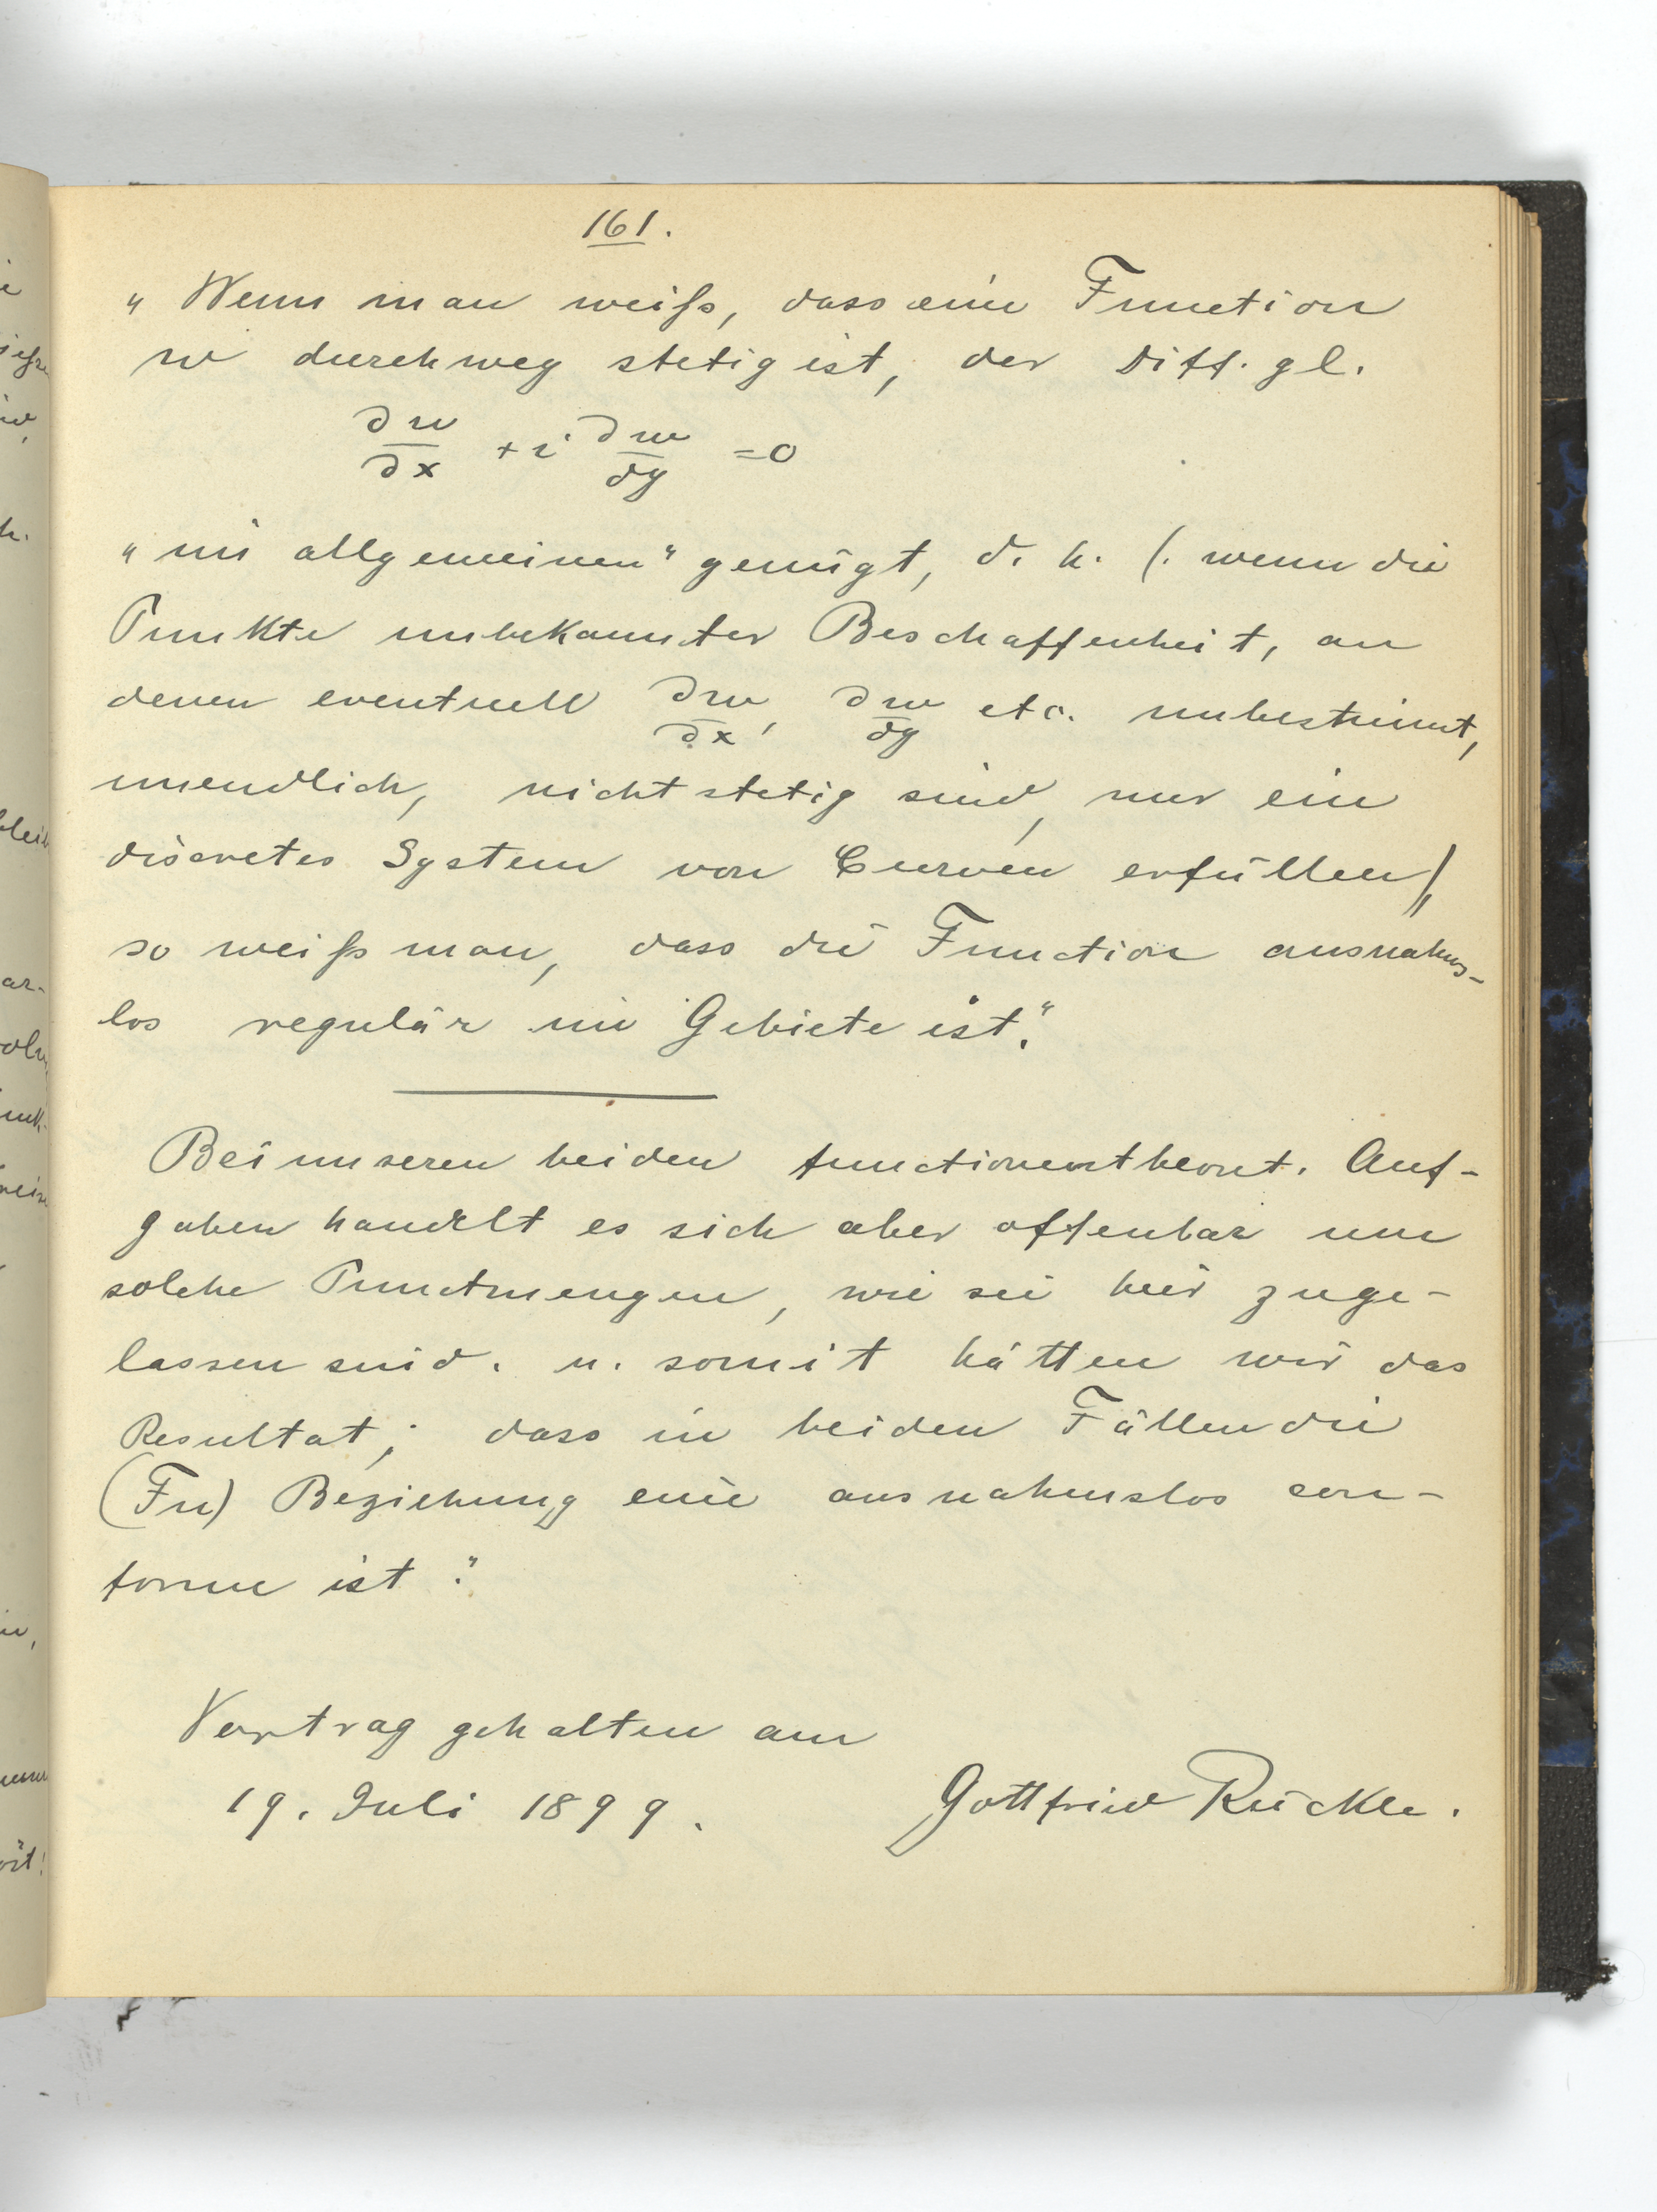 161.
„ Wenn man weiß, dass eine Function
w durchweg stetig ist, der Diff. gl.
∂w/∂x + i ∂w/∂y = 0
„ im allgemeinen" genügt, d. h. (. wenn die
Punkte unbekannter Beschaffenheit, an
denen eventuell ∂w/∂x, ∂w/∂y etc. unbestimmt,
unendlich, nicht stetig sind, nur ein
discretes System von Curven erfüllen),
so weiß man, dass die Function ausnahms-
los regulär im Gebiete ist."
Bei unseren beiden functionentheoret. Auf-
gaben handelt es sich aber offenbar um
solche Punctmengen, wie sie hier zuge-
lassen sind. u. somit hätten wir das
Resultat; dass in beiden Fällen die
(Fu) Beziehung eine ausnahmslos con-
forme ist."
Vortrag gehalten am
19. Juli 1899.
Gottfried Rückle.